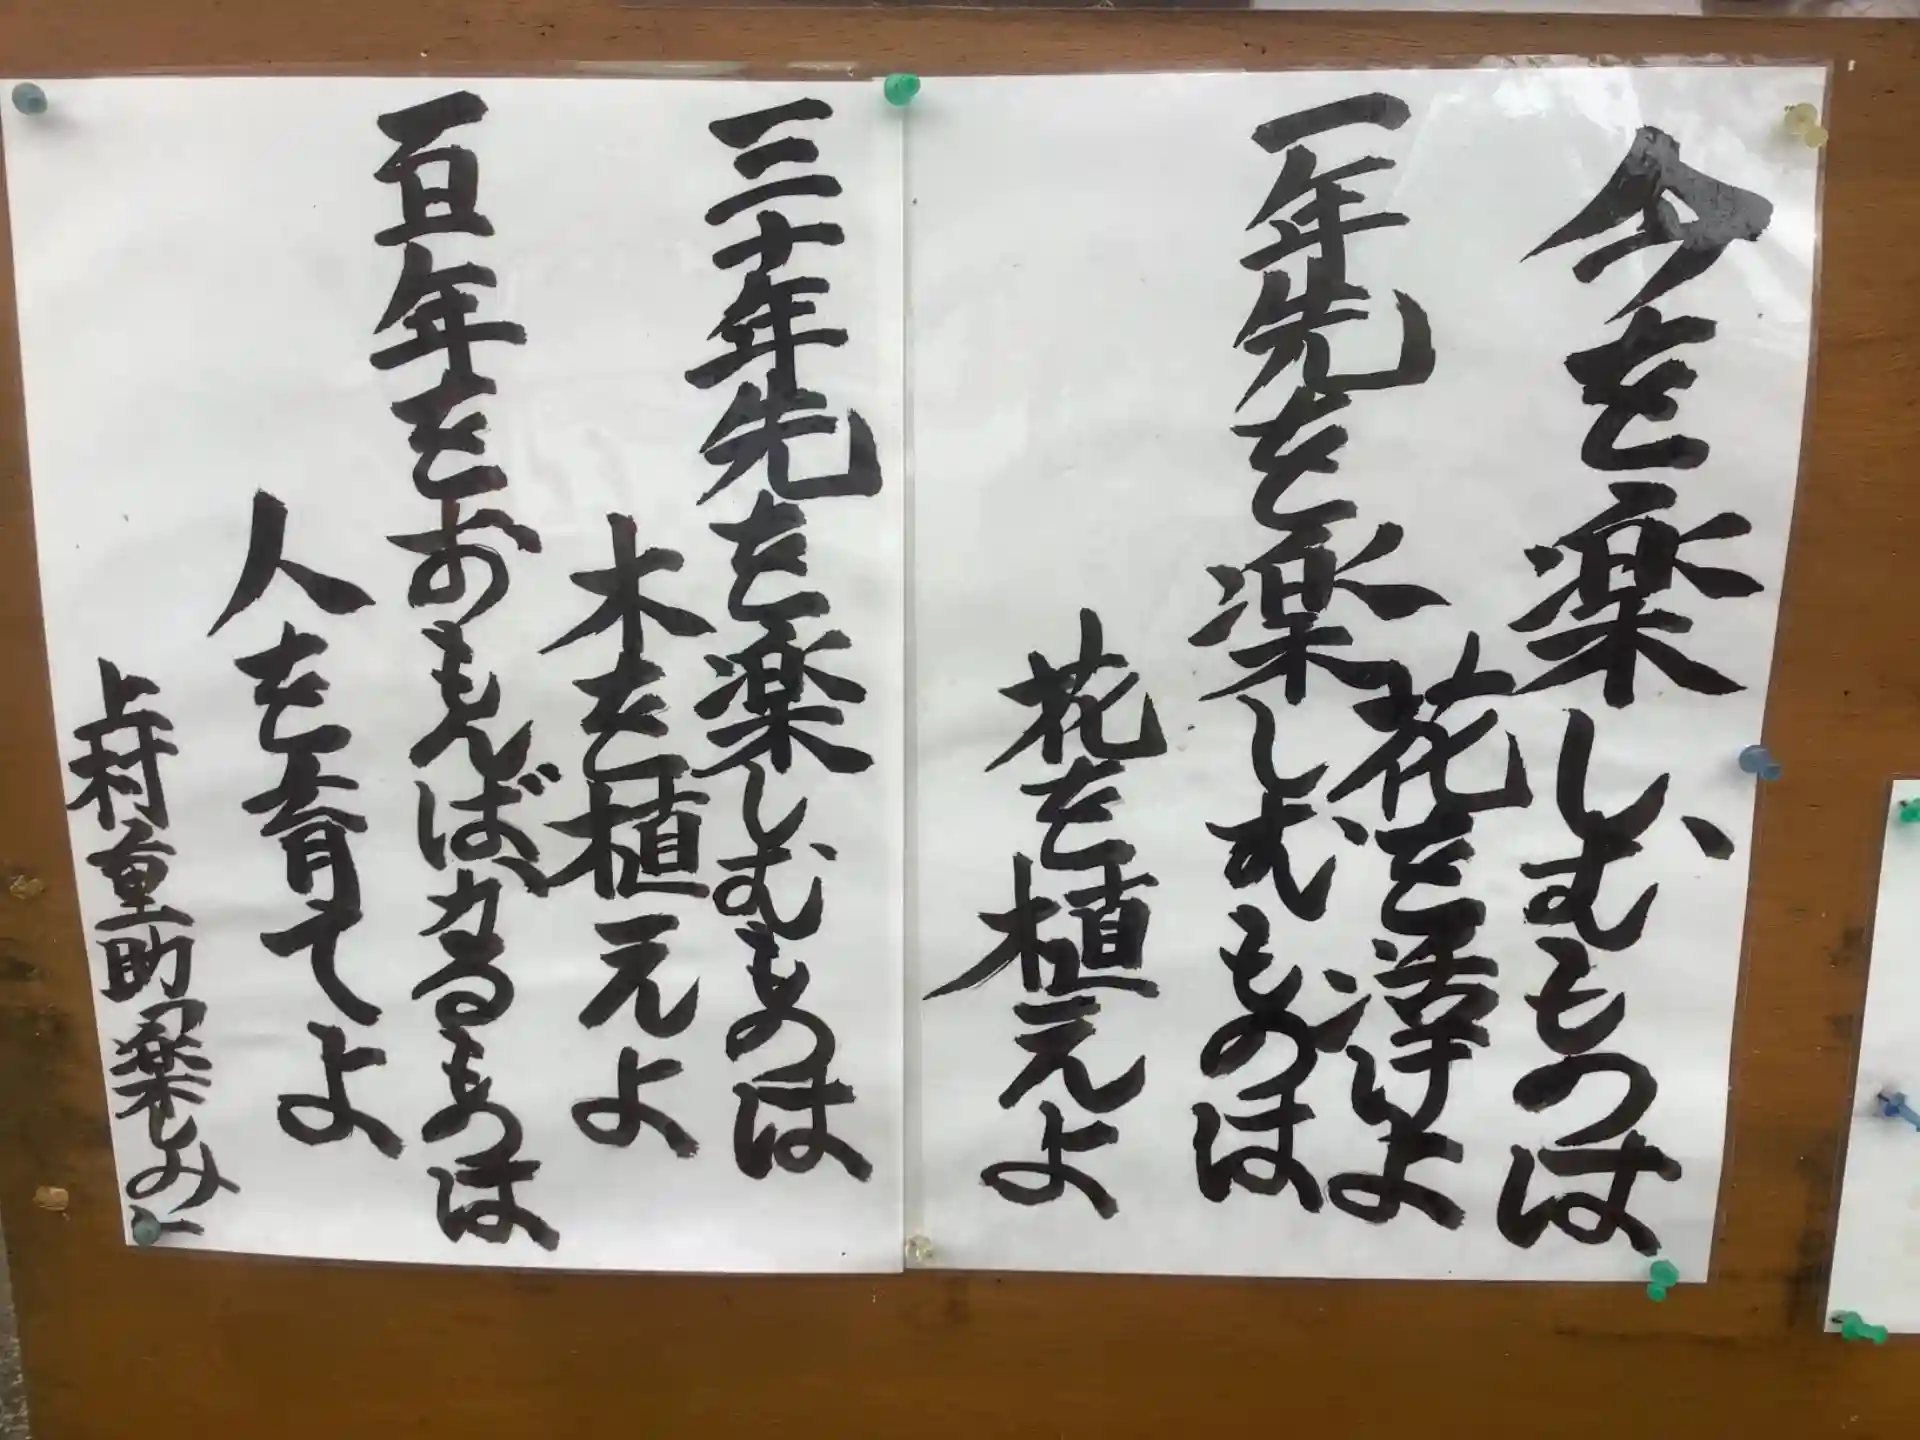 今を楽しむものは
花を活けよ
一年先を楽しむものは
花を植えよ
三十年先を楽しむものは
木を植えよ
百年をおもんばかるものは
人を育てよ
上村重助 楽しみに